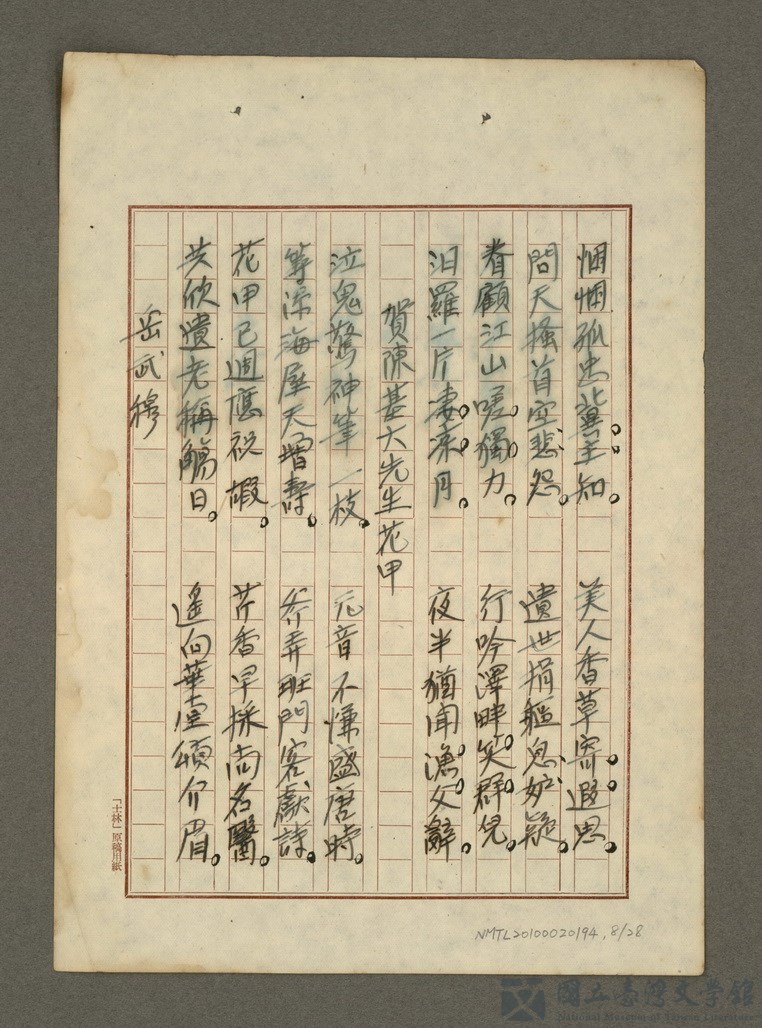 悃悃孤忠冀主知。 美人香草寄遐思。
問天搔首空悲怨。 遺世捐軀息妒疑。
眷顧江山嗟獨力。 行吟澤畔笑群兒。
汨羅一片凄涼月。 夜半猶聞漁父辭。
賀陳甚大先生花甲
泣鬼驚神筆一枝。 元音不慊盛唐時。
籌添海屋天增壽。 斧弄班門客獻詩。
花甲已週應祝嘏。 芹香早採尚名醫。
共欣遺老稱觴日。 遙向華堂頌介眉。
岳武穆
「士林」原稿用紙
NMTL20100020194, 8/28
國立臺灣文學館
National Museum of Taiwan Literature